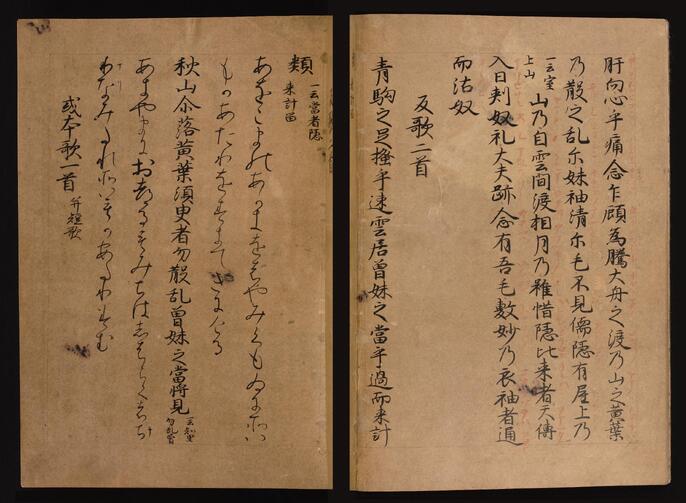 肝向心乎痛念乍顧為騰大舟之渡乃山之黄葉
乃散之乱尓妹袖清尓毛不見儒隠有屋上乃
一云室上山 山乃自雲間渡相月乃雖惜隠比来者天傳
入日刾奴礼大夫跡念有吾毛敷妙乃衣袖者通
而沾奴
反歌二首
青駒之足掻乎速雲居曽妹之當乎過而来計
類 一云當者隠来計留
あをこまのあかきをはやみくもゐにそい
もかあたりをすきてきにける
秋山尓落黄葉須臾者勿散乱曽妹之當将見 一云知里勿乱曽
あきやまにおつるもみちはしはらく
なみたれそいもかあたりみむ
或本歌一首 并短歌